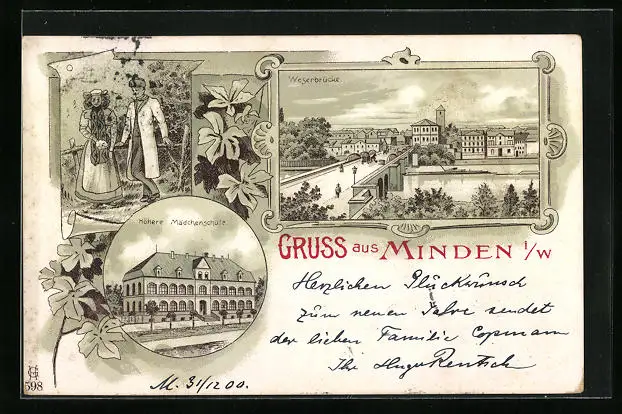 Weserbrücke.
Höhere Mädchenschule.
GRUSS aus MINDEN i/W
Herzlichen Glückwunsch
zum neuen Jahre sendet
der lieben Familie Copmann
Ihr Hugo Rentsch
M. 31/12 00.
598